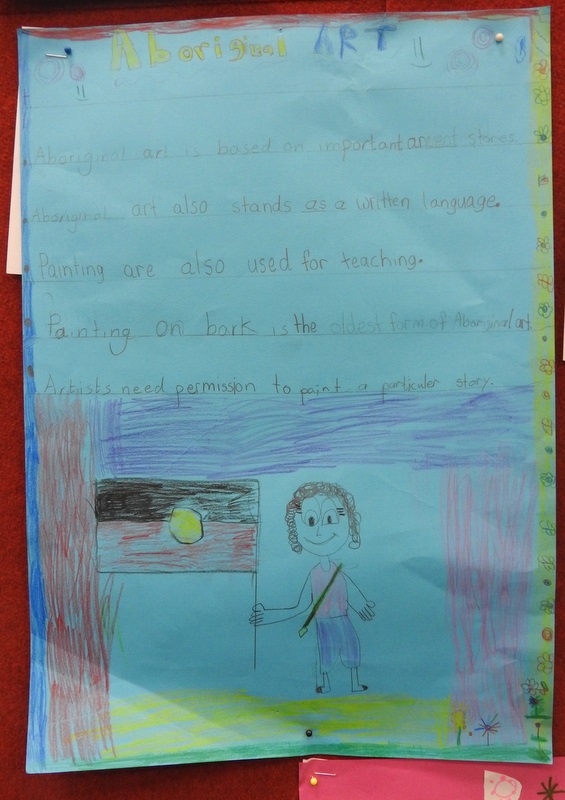 Aboriginal ART
Aboriginal art is based on important ancent stories
Aboriginal art also stands as a written language.
Painting are also used for teaching.
Painting on bark is the oldest form of Aboriginal art
Artists need permission to paint a particuler story.